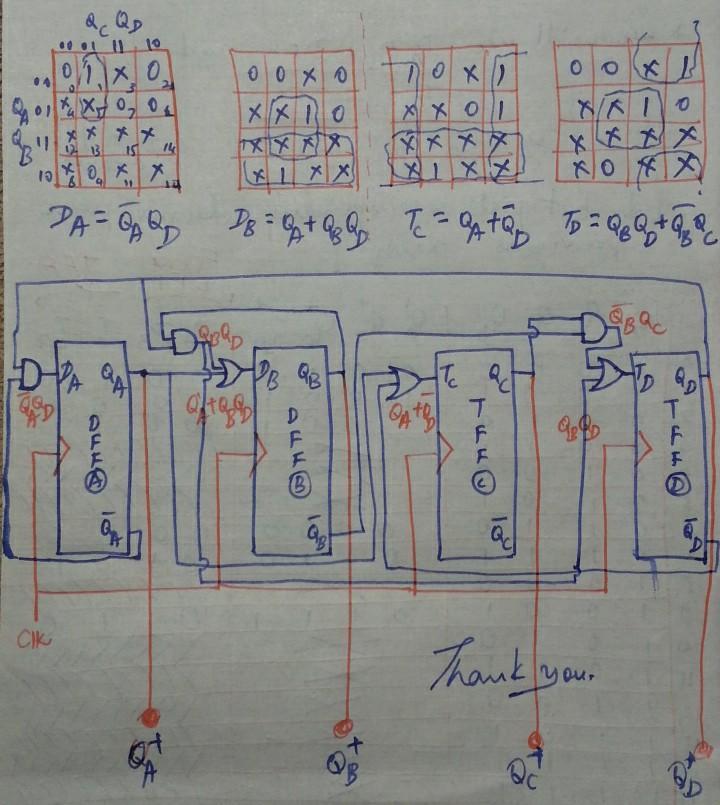 Q_C Q_D
00 01 11 10
Q_A Q_B
00 0 1 X 0 0 0 X 0 1 0 X 1 0 0 X 1
01 X X 0 0 X X 1 0 X X 0 1 X X 1 0
11 X X X X X X X X X X X X X X X X
10 X 0 X X X 1 X X X 1 X X X 0 X X
D_A = Q̄_A Q_D D_B = Q_A + Q_B Q_D T_C = Q_A + Q̄_D T_D = Q_B Q_D + Q̄_B Q_C
Q̄_B Q_C
Q_B Q_D
D_A Q_A D_B Q_B T_C Q_C T_D Q_D
Q̄_A Q_D Q_A + Q_B Q_D Q_A + Q̄_D Q_B Q_D
D D T T
F F F F
F F F F
A B C D
Q̄_A Q̄_B Q̄_C Q̄_D
Clk
Thank you.
Q_A^+ Q_B^+ Q_C^+ Q_D^+